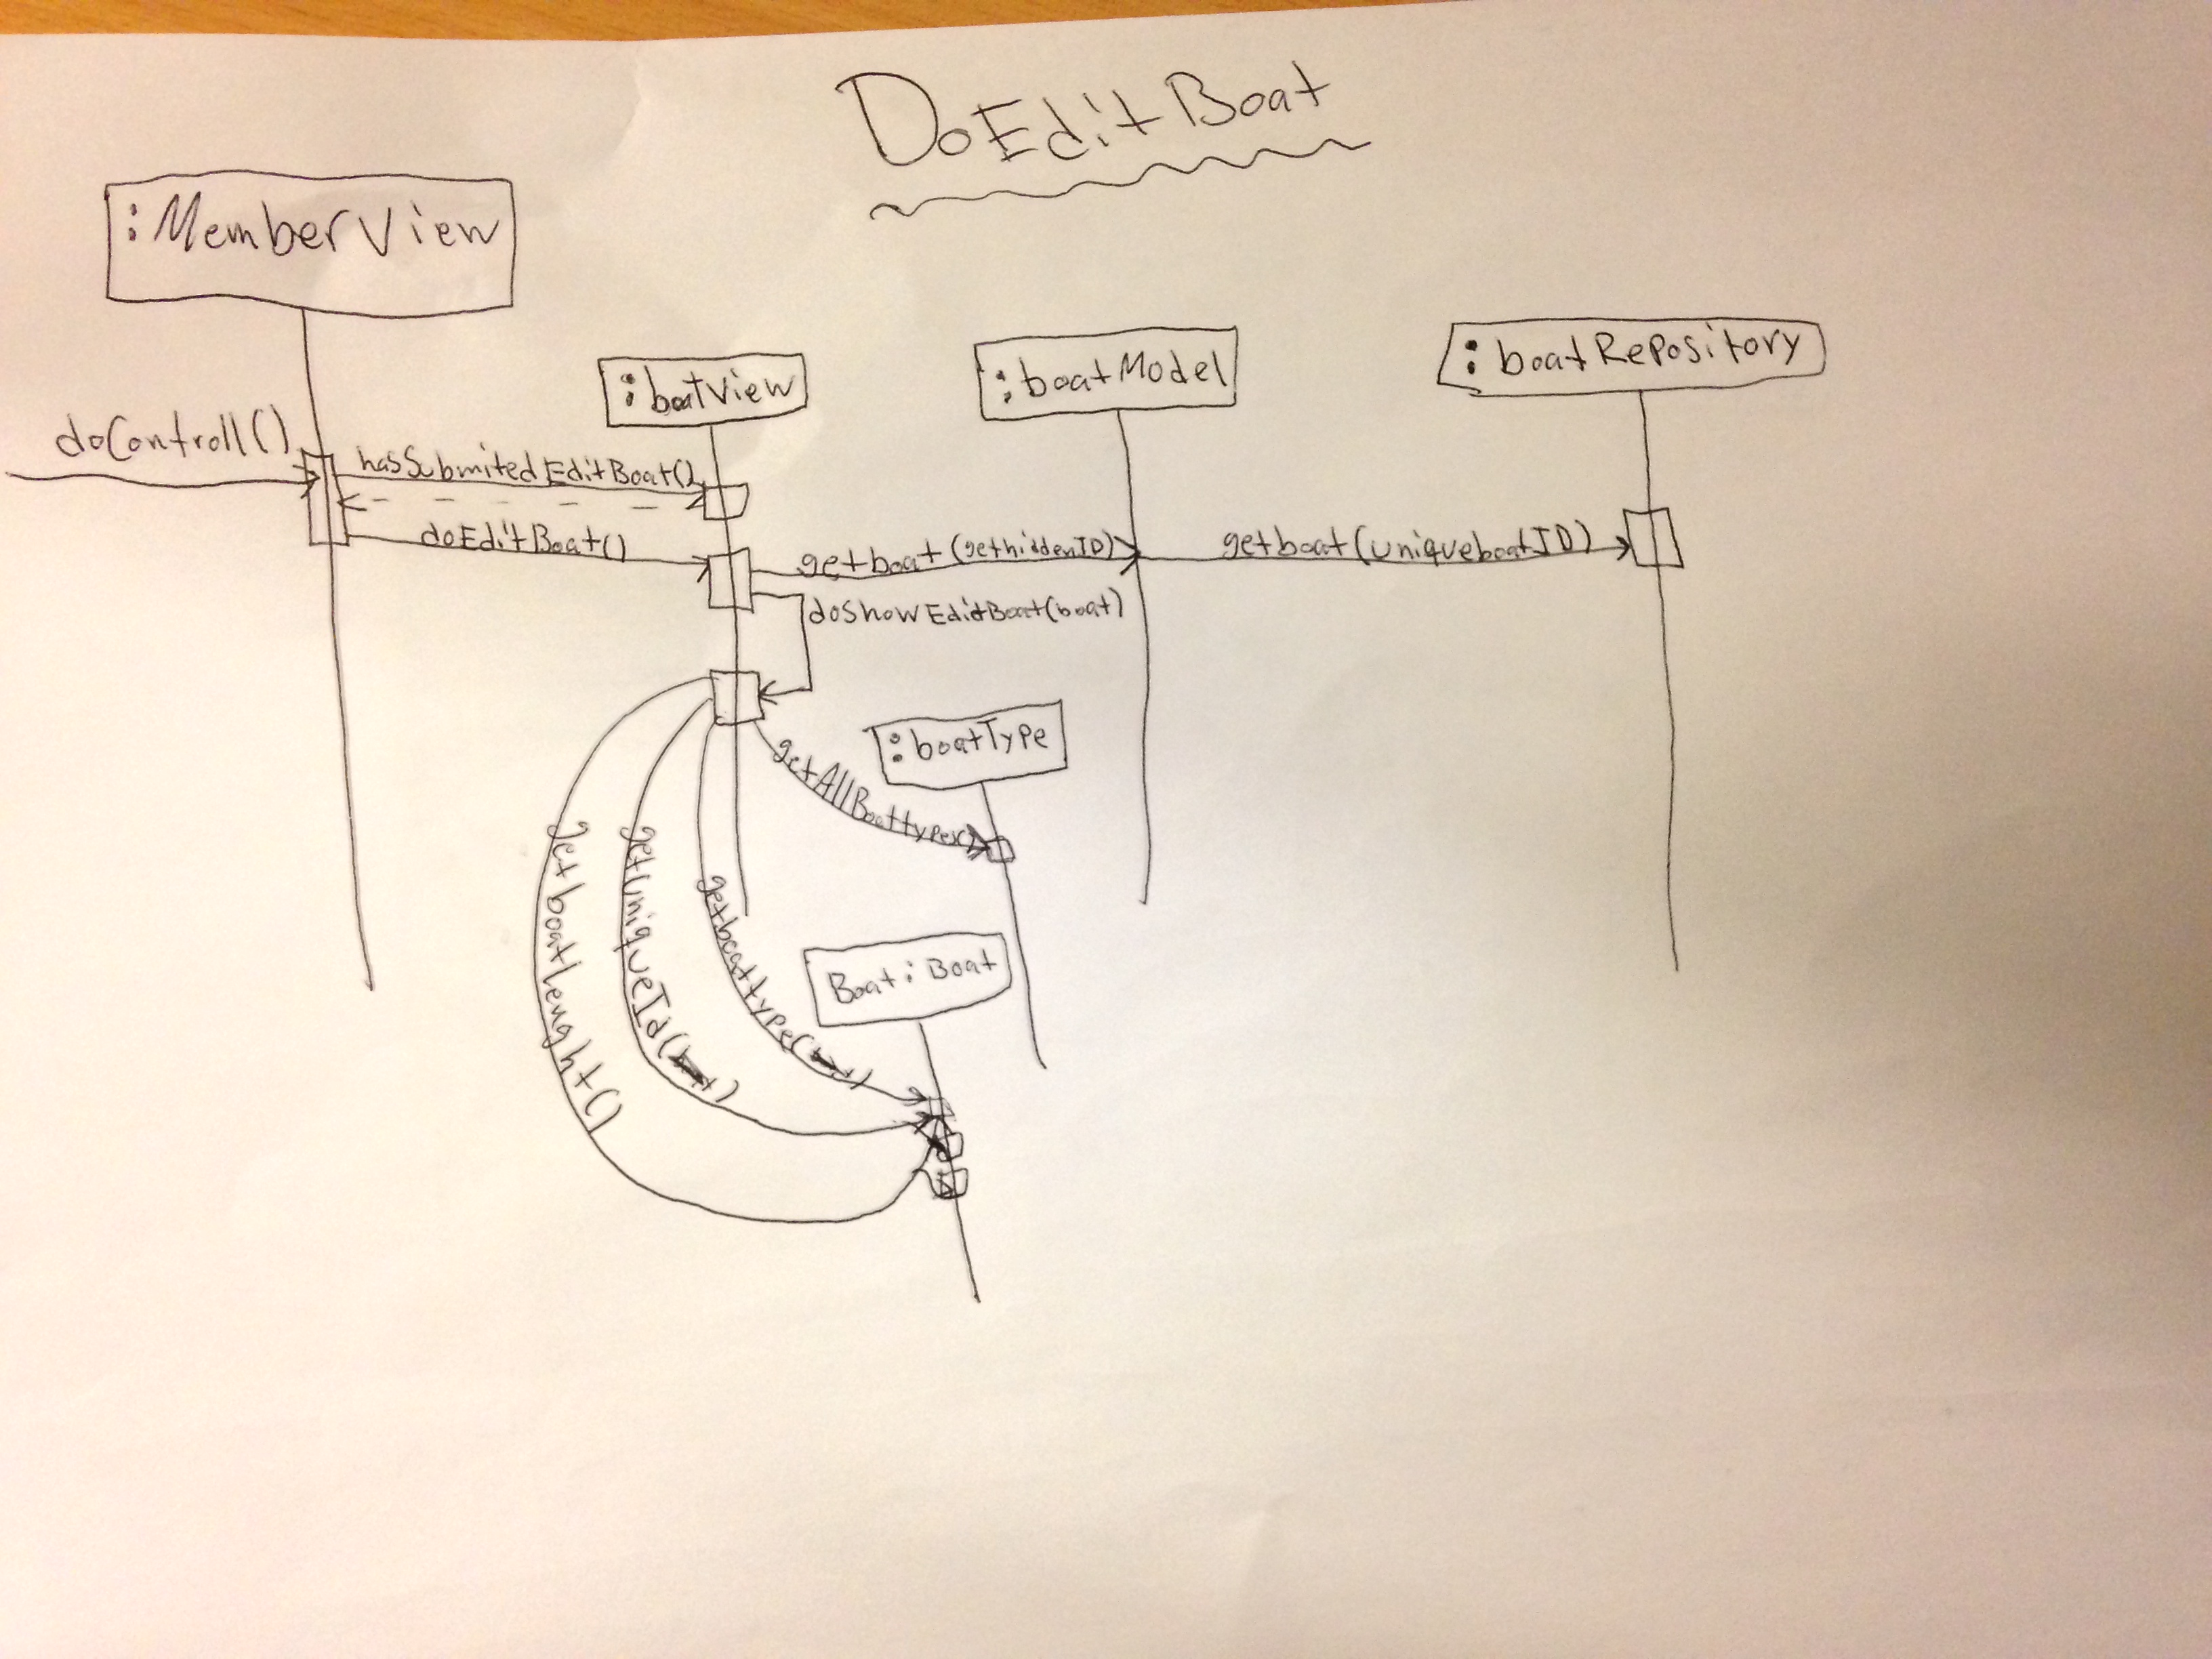 DoEditBoat
:MemberView
:boatView
:boatModel
:boatRepository
doControll()
hasSubmitedEditBoat()
doEditBoat()
getboat(gethiddenID)
getboat(uniqueboatID)
doShowEditBoat(boat)
:boatType
getAllBoattypes()
getboatlenght()
getuniqueId( )
getboattype( )
Boat:Boat